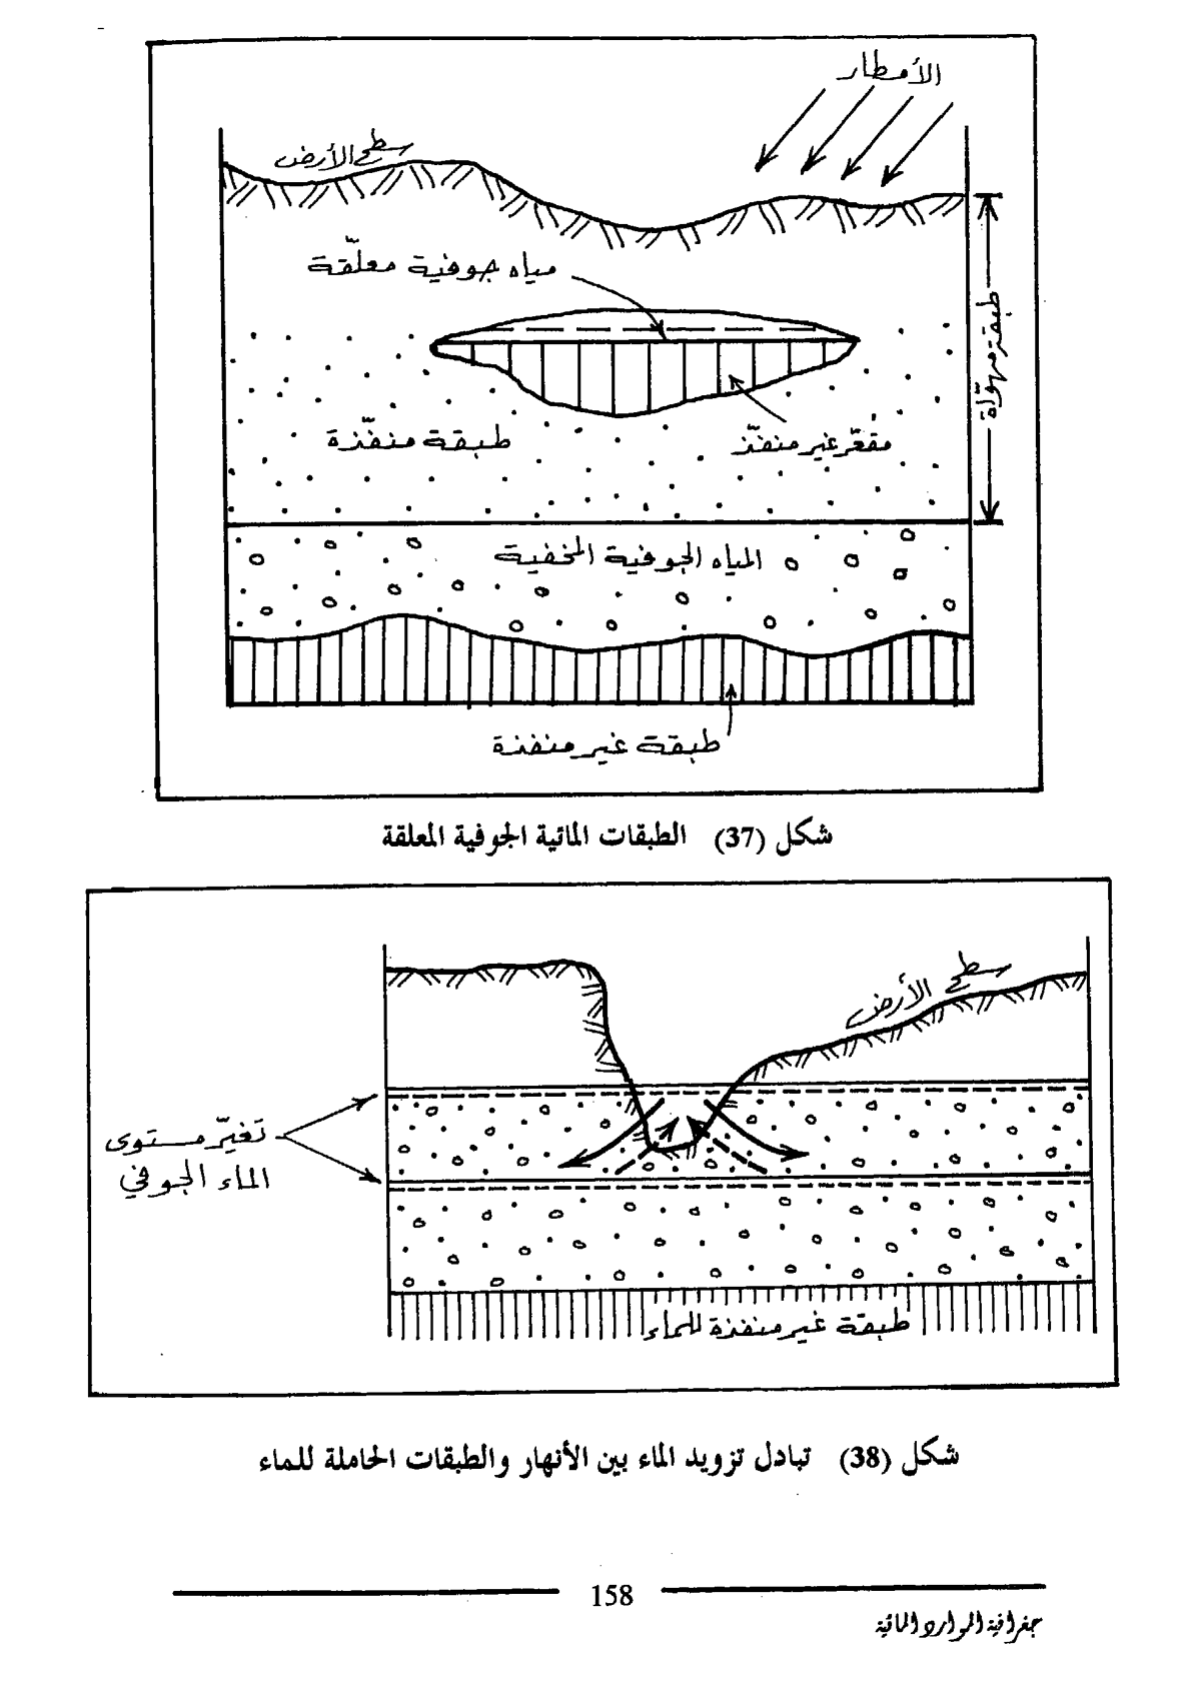 الأمطار
سطح الأرض
مياه جوفية معلّقة
طبقة مهوّاة
طبقة منفّذة
مقعّر غير منفّذ
المياه الجوفية المخفية
طبقة غير منفذة
شكل (37) الطبقات المائية الجوفية المعلقة
سطح الأرض
تغيّر مستوى
الماء الجوفي
طبقة غير منفذة للماء
شكل (38) تبادل تزويد الماء بين الأنهار والطبقات الحاملة للماء
158
جغرافية الموارد المائية